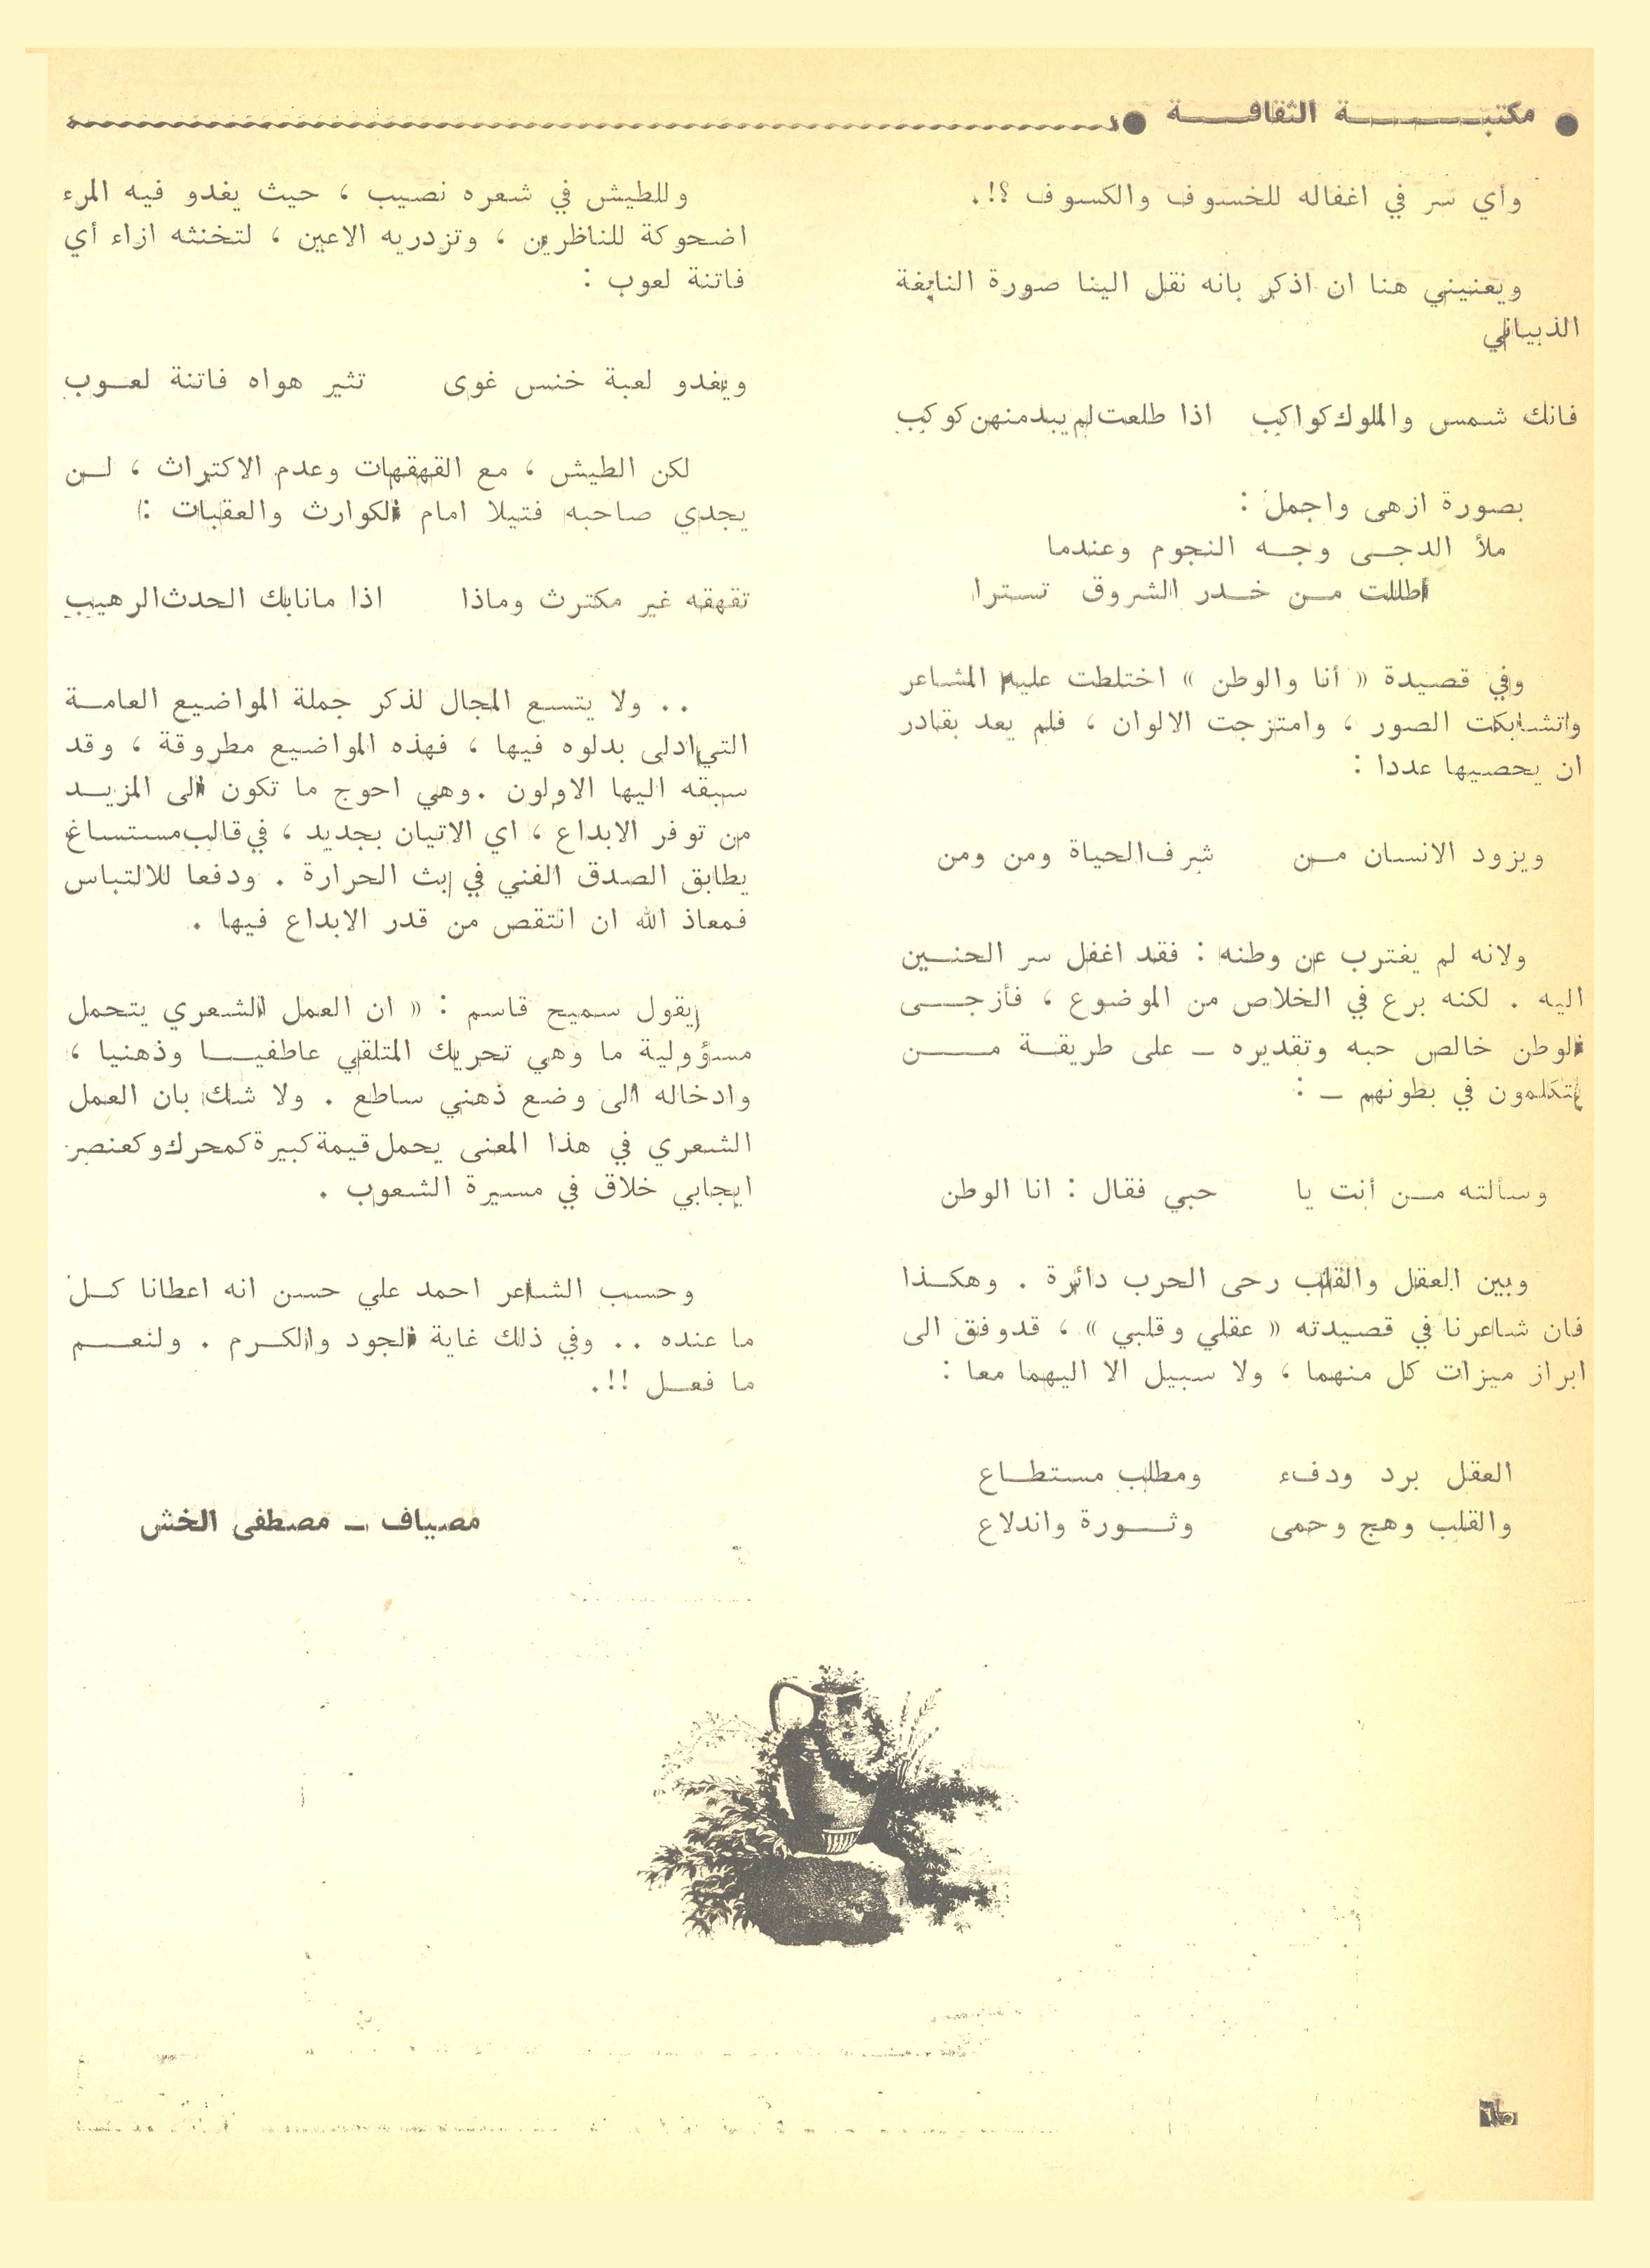 مكتبة الثقافة
وأي سر في اغفاله للخسوف والكسوف ؟!.
ويعنيني هنا ان اذكر بانه نقل الينا صورة النابغة
الذبياني
فانك شمس والملوك كواكب اذا طلعت لم يبد منهن كوكب
بصورة ازهى واجمل :
ملأ الدجى وجه النجوم وعندما
اطللت من خدر الشروق تسترا
وفي قصيدة « أنا والوطن » اختلطت عليه المشاعر
واتشابكت الصور ، وامتزجت الالوان ، فلم يعد بقادر
ان يحصيها عددا :
ويزود الانسان من شرف الحياة ومن ومن
ولانه لم يغترب عن وطنه : فقد اغفل سر الحنين
اليه . لكنه برع في الخلاص من الموضوع ، فأزجى
الوطن خالص حبه وتقديره ـ على طريقة من
يتكلمون في بطونهم ـ :
وسألته من أنت يا حبي فقال : انا الوطن
وبين العقل والقلب رحى الحرب دائرة . وهكذا
فان شاعرنا في قصيدته « عقلي وقلبي » ، قد وفق الى
ابراز ميزات كل منهما ، ولا سبيل الا اليهما معا :
العقل برد ودفء ومطلب مستطاع
والقلب وهج وحمى وثورة واندلاع
وللطيش في شعره نصيب ، حيث يغدو فيه المرء
اضحوكة للناظرين ، وتزدريه الاعين ، لتخنثه ازاء أي
فاتنة لعوب :
ويغدو لعبة خنس غوى تثير هواه فاتنة لعوب
لكن الطيش ، مع القهقهات وعدم الاكتراث ، لن
يجدي صاحبه فتيلا امام الكوارث والعقبات :
تقهقه غير مكترث وماذا اذا ما نابك الحدث الرهيب
.. ولا يتسع المجال لذكر جملة المواضيع العامة
التي ادلى بدلوه فيها ، فهذه المواضيع مطروقة ، وقد
سبقه اليها الاولون . وهي احوج ما تكون الى المزيد
من توفر الابداع ، اي الاتيان بجديد ، في قالب مستساغ
يطابق الصدق الفني في بث الحرارة . ودفعا للالتباس
فمعاذ الله ان انتقص من قدر الابداع فيها .
يقول سميح قاسم : « ان العمل الشعري يتحمل
مسؤولية ما وهي تحريك المتلقي عاطفيا وذهنيا ،
وادخاله الى وضع ذهني ساطع . ولا شك بان العمل
الشعري في هذا المعنى يحمل قيمة كبيرة كمحرك وكعنصر
ايجابي خلاق في مسيرة الشعوب .
وحسب الشاعر احمد علي حسن انه اعطانا كل
ما عنده .. وفي ذلك غاية الجود والكرم . ولنعم
ما فعل !!.
مصياف ـ مصطفى الخش